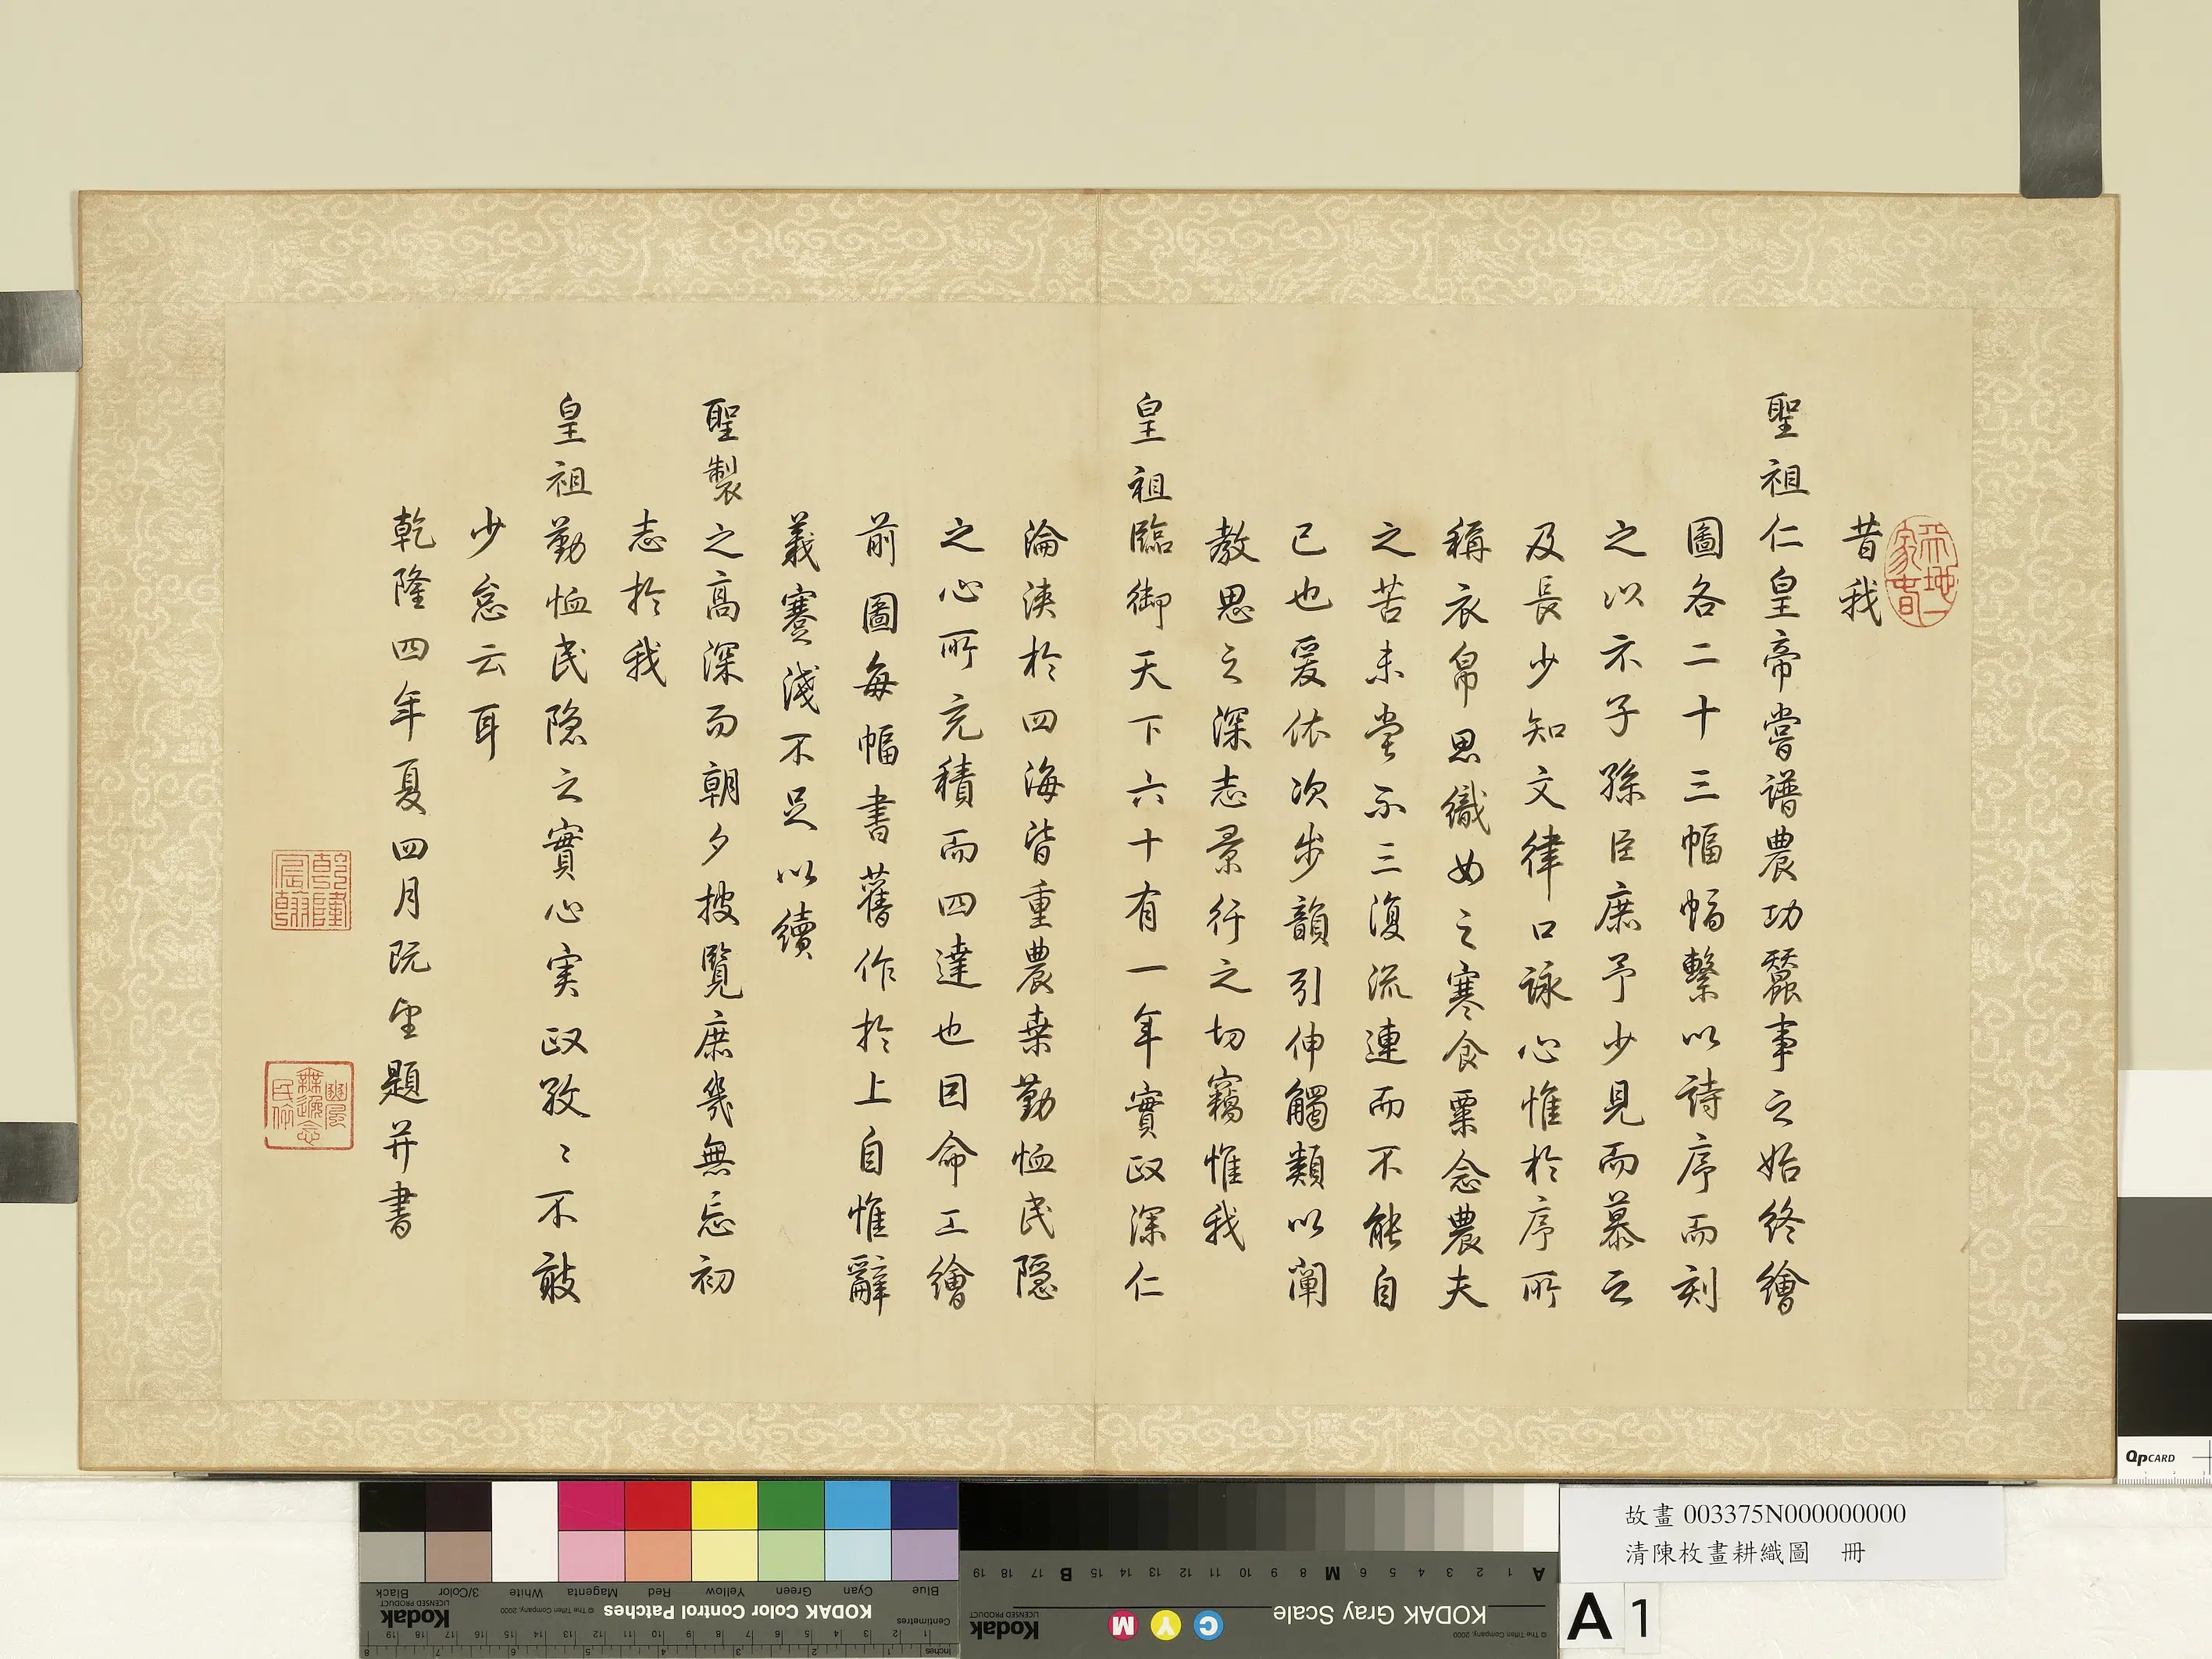 昔我
聖祖仁皇帝嘗譜農功蠶事之始終繪
圖各二十三幅幅繫以詩序而刻
之以示子孫臣庶予少見而慕之
及長少知文律口詠心惟於序所
稱衣帛思織女之寒食粟念農夫
之苦未嘗不三復流連而不能自
已也爰依次步韻引伸觸類以闡
教思之深志景行之切竊惟我
皇祖臨御天下六十有一年實政深仁
淪浹於四海皆重農桒勤恤民隱
之心所充積而四達也因命工繪
前圖每幅書舊作於上自惟辭
義蹇淺不足以續
聖製之高深而朝夕披覽庶幾無忘初
志於我
皇祖勤恤民隐之實心実政孜〻不敢
少怠云耳
乾隆四年夏四月既望題并書
天地一家春
乾隆宸翰
KODAK Color Control Patches
© The Tiffen Company, 2000
Kodak
LICENSED PRODUCT
Blue Cyan Green Yellow Red Magenta White 3/Color Black
Centimetres
Inches
KODAK Gray Scale
C Y M
Kodak
LICENSED PRODUCT
© The Tiffen Company, 2000
A 1 2 3 4 5 6 M 8 9 10 11 12 13 14 15 B 17 18 19
QPCARD
故畫 003375N000000000
清陳枚畫耕織圖 冊
A 1